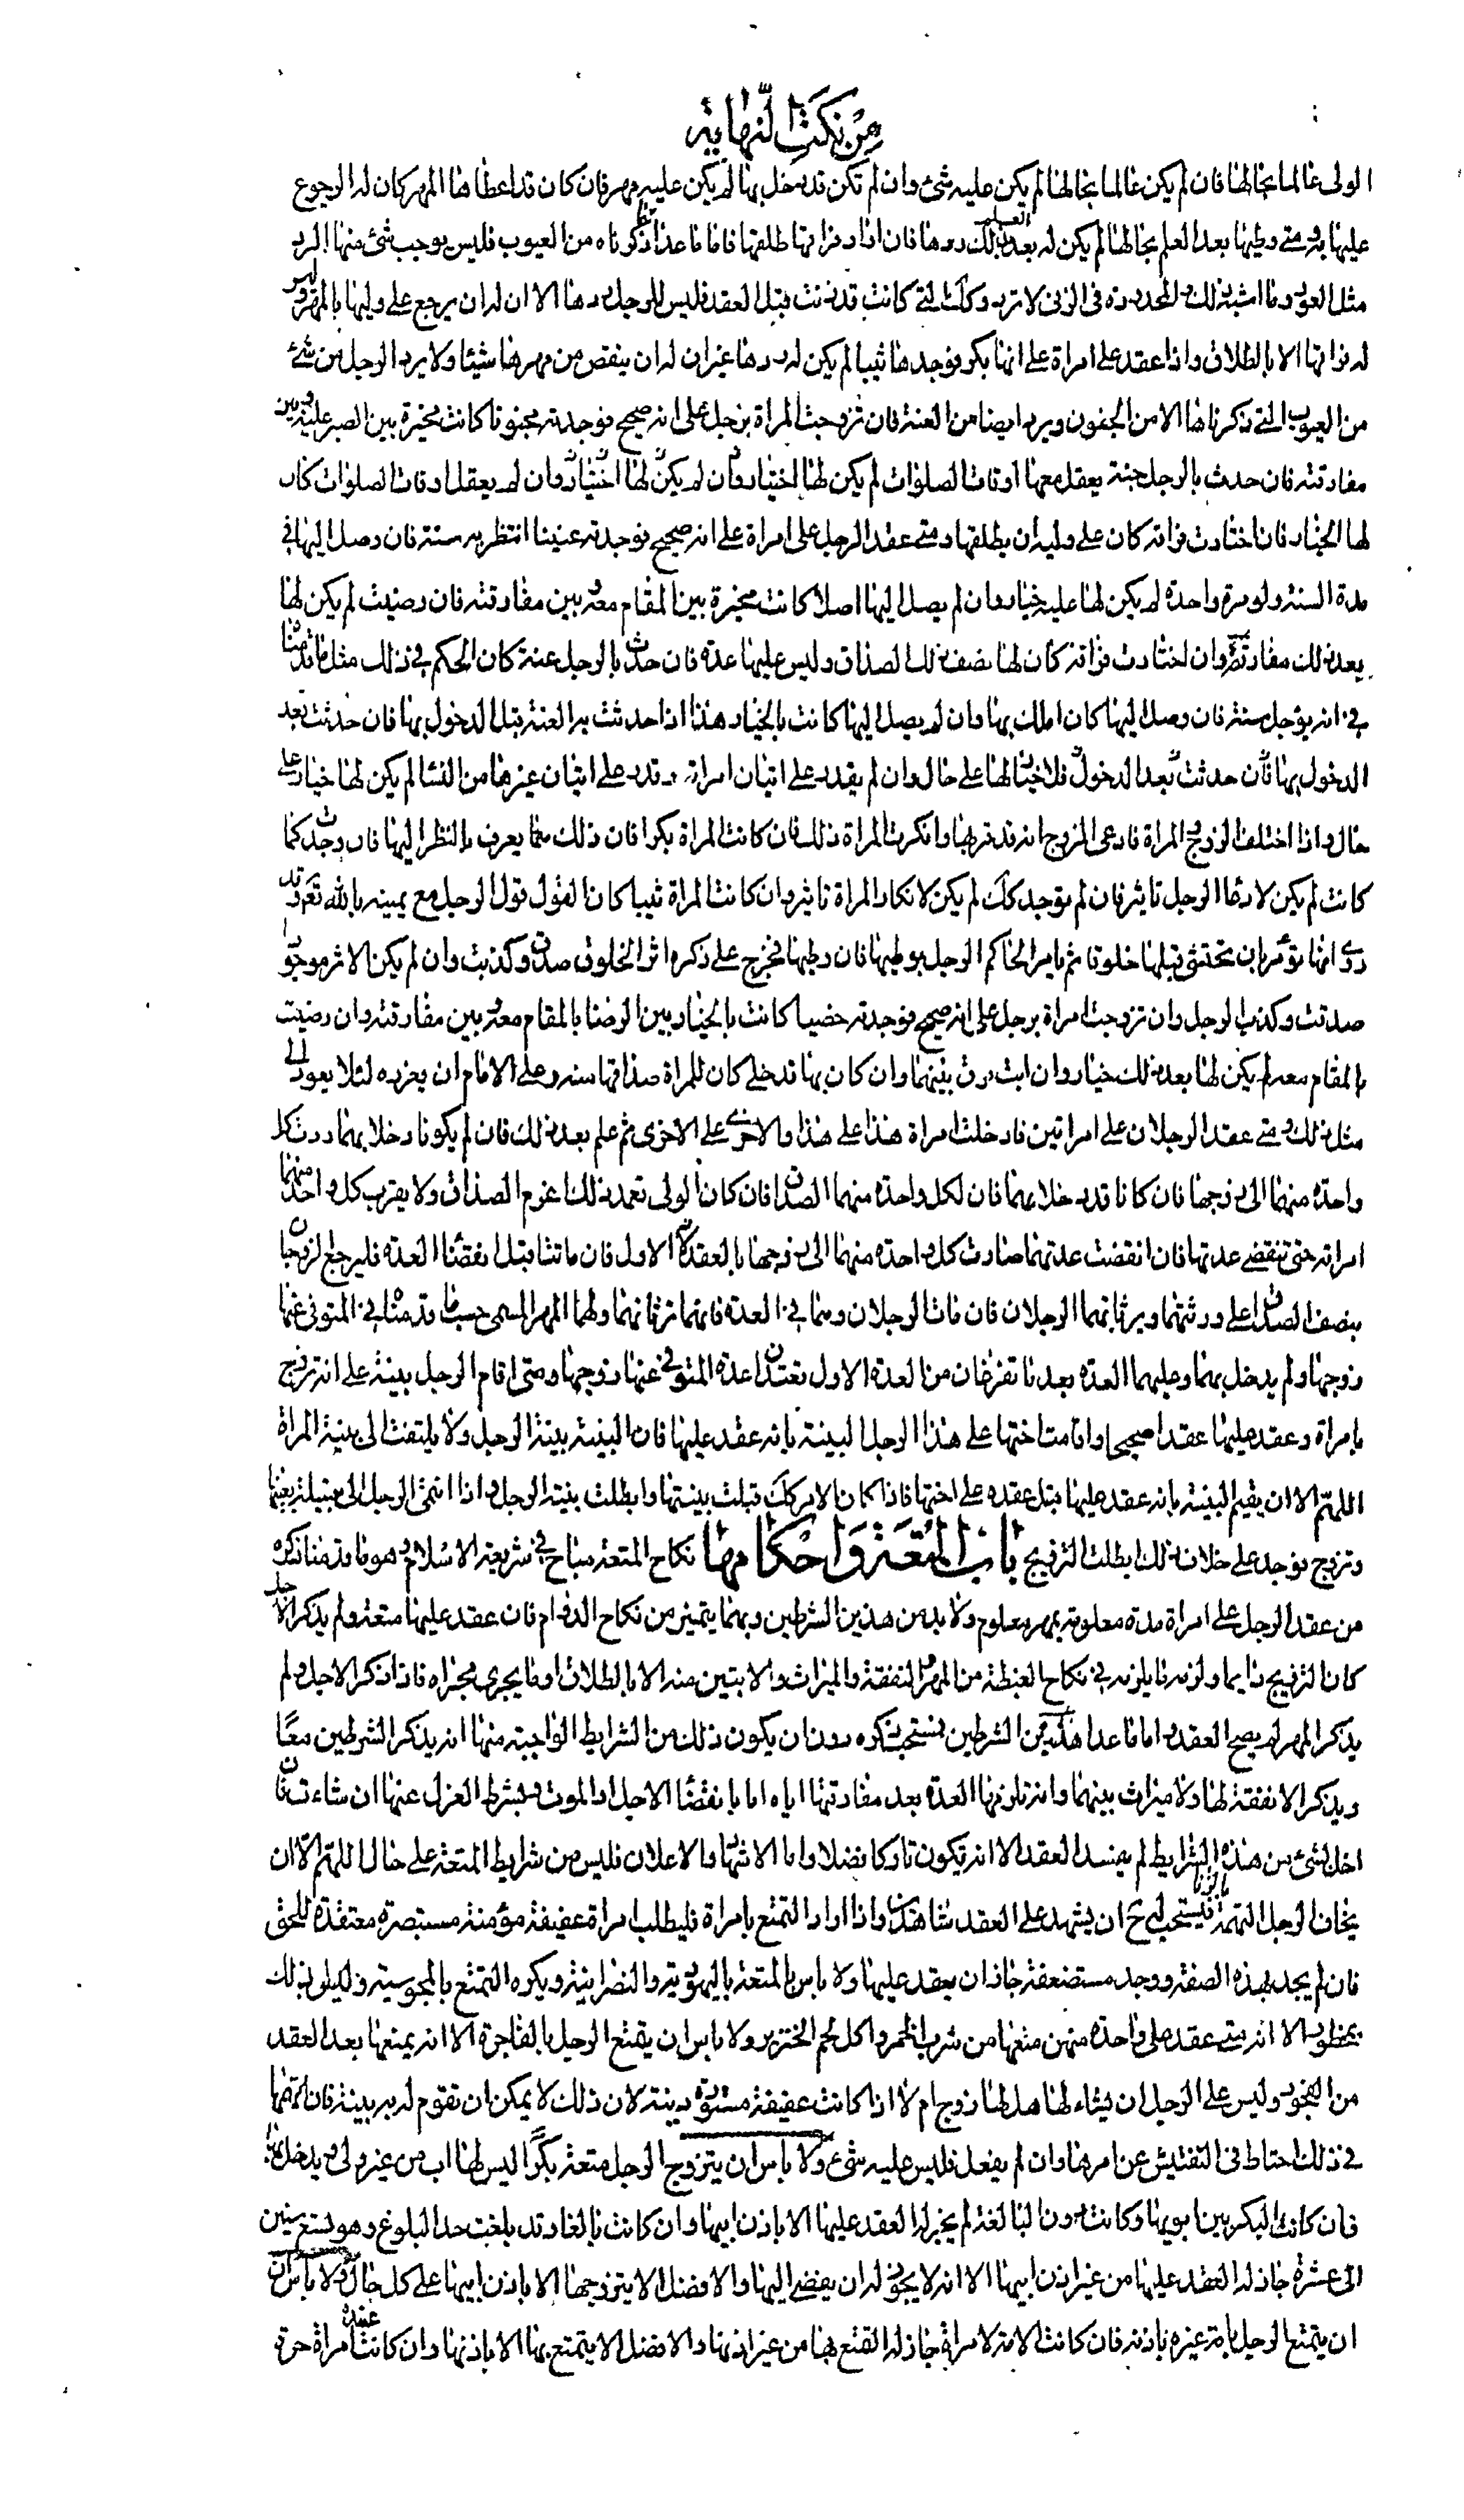 من نكت النهاية
الولى عالما بحالها فان لم يكن عالما بحالها لم يكن عليه شئ وان لم تكن قد دخل بها لم يكن عليه مهر فان كان قد اعطاها المهر كان له الرجوع
عليها به ومتى وطيها بعد العلم بحالها لم يكن له بعد ذلك ردها فان اراد فراقها طلقها فاما ما عدا ما ذكرناه من العيوب فليس يوجب شئ منها الرد
مثل العور وما اشبه ذلك والمحدودة فى الزنى لا ترد وكك التى كانت قد زنت قبل العقد فليس للرجل ردها الا ان له ان يرجع على وليها بالمهر وليس
له فراقها الا بالطلاق واذا عقد على امراة على انها بكر فوجدها ثيبا لم يكن له ردها غير ان له ان ينقص من مهرها شيئا ولا يرد الرجل من شئ
من العيوب التى ذكرناها الا من الجنون ويرد ايضا من العنة فان تزوجت المراة برجل على انه صحيح فوجدته مجنونا كانت مخيرة بين الصبر عليه وبين
مفارقته فان حدث بالرجل جنة يعقل معها اوقات الصلوات لم يكن لها اختيار وان لم يكن لها اختيار وان لم يعقل اوقات الصلوات كان
لها الخيار فان اختارت فراقه كان على وليه ان يطلقها ومتى عقد الرجل على امراة على انه صحيح فوجدته عنينا انتظر به سنة فان وصل اليها فى
مدة السنة ولو مرة واحدة لم يكن لها عليه خيار وان لم يصل اليها اصلا كانت مخيرة بين المقام معه وبين مفارقته فان رضيت لم يكن لها
بعد ذلك مفارقته وان اختارت فراقه كان لها نصف الصداق وليس عليها عدة فان حدث بالرجل عنة كان الحكم فى ذلك مثل ما قدمنا
فى انه يؤجل سنة فان وصل اليها كان املك بها وان لم يصل اليها كانت بالخيار هذا اذا حدثت به العنة قبل الدخول بها فان حدثت بعد
الدخول بها فان حدثت بعد الدخول فلا خيار لها على حال وان لم يقدر على اتيان امراته وقدر على اتيان غيرها من النسا لم يكن لها خيار على
حال واذا اختلف الزوج والمراة فادعى الزوج انه قد قربها وانكرت المراة ذلك فان كانت المراة بكرا فان ذلك مما يعرف بالنظر اليها فان وجدت كما
كانت لم يكن لادعا الرجل تاثير فان لم توجد كك لم يكن لانكار المراة تاثير وان كانت المراة ثيبا كان القول قول الرجل مع يمينه بالله تعم وقد
روى انها تؤمر بان تحتشى قبلها خلوقا ثم يامر الحاكم الرجل بوطيها فان وطيها فخرج على ذكره اثر الخلوق صدق وكذبت وان لم يكن الاثر موجودا
صدقت وكذب الرجل وان تزوجت امراة برجل على انه صحيح فوجدته خصيا كانت بالخيار بين الرضا بالمقام معه وبين مفارقته وان رضيت
بالمقام معه لم يكن لها بعد ذلك خيار وان ابت فرق بينهما وان كان بها قد خلى كان للمراة صداقها منه وعلى الامام ان يعزره لئلا يعود الى
مثل ذلك ومتى عقد الرجلان على امراتين فادخلت امراة هذا على هذا والاخرى على الاخرى ثم علم بعد ذلك فان لم يكونا دخلا بهما ردت كل
واحدة منهما الى زوجها فان كانا قد دخلا بهما فان لكل واحدة منهما الصداق فان كان الولى تعمد ذلك اغرم الصداق ولا يقرب كل واحد منهما
امراته حتى تنقضى عدتها فان انقضت عدتهما صارت كل واحدة منهما الى زوجها بالعقد الاول فان ماتتا قبل انقضا العدة فليرجع الزوجان
بنصف الصداق على ورثتهما ويرثانهما الرجلان فان مات الرجلان وهما فى العدة فانهما ترثانهما ولهما المهر المسمى حسب ما قدمناه فى المتوفى عنها
زوجها ولم يدخل بهما وعليهما العدة بعد ما تفرغان من العدة الاولى تعتدان عدة المتوفى عنها زوجها ومتى اقام الرجل بينة على انه تزوج
بامراة وعقد عليها عقدا صحيحا واقامت اختها على هذا الرجل البينة بانه عقد عليها فان البينة بينة الرجل ولا يلتفت الى بينة المراة
اللهم الا ان يقيم البينة بانه عقد عليها قبل عقده على اختها فاذا كان الامر كك قبلت بينتها وابطلت بينة الرجل واذا انتمى الرجل الى قبيلة بعينها
وتزوج فوجد على خلاف ذلك ابطلت التزويج باب المتعة واحكامها نكاح المتعة مباح فى شريعة الاسلام وهو ما قدمنا ذكره
من عقد الرجل على امراة مدة معلومة بمهر معلوم ولا بد من هذين الشرطين وبهما يتميز من نكاح الدوام فان عقد عليها متعة ولم يذكر الاجل
كان التزويج دايما ولزمه ما يلزمه فى نكاح الغبطة من المهر والنفقة والميراث والا تبين منه الا بالطلاق او ما يجرى مجراه فاذا ذكر الاجل ولم
يذكر المهر لم يصح العقد واما ما عدا هذين من الشرطين فمستحب ذكره دون ان يكون ذلك من الشرايط الواجبة منها انه يذكر الشرطين معا
ويذكر الا نفقة لها ولا ميراث بينهما وانه تلزمها العدة بعد مفارقتها اياه اما بانقضا الاجل او الموت ويشترط العزل عنها ان شاء فان
اخل بشئ من هذه الشرايط لم يفسد العقد الا انه يكون تاركا فضلا واما الاشهاد والاعلان فليس من شرايط المتعة على حال اللهم الا ان
يخاف الرجل التهمة بالزنا فيستحب له ح ان يشهد على العقد شاهدين واذا اراد التمتع بامراة فليطلب امراة عفيفة مؤمنة مستبصرة معتقدة للحق
فان لم يجد بهذه الصفة ووجد مستضعفة جاز ان يعقد عليها ولا باس بالمتعة باليهودية والنصرانية ويكره التمتع بالمجوسية وليس ذلك
بمحظور الا انه متى عقد على واحدة منهن منعها من شرب الخمر واكل لحم الخنزير ولا باس ان يتمتع الرجل بالفاجرة الا انه يمنعها بعد العقد
من الفجور وليس على الرجل ان يساء لها هل لها زوج ام لا اذا كانت عفيفة مستورة دينة لان ذلك لا يمكن ان تقوم له به بينة فان اتهمها
فى ذلك احتاط فى التفتيش عن امرها وان لم يفعل فليس عليه شئ ولا باس ان يتزوج الرجل متعة بكرا ليس لها اب من غير ولى ويدخل بها
فان كانت البكر بين ابويها وكانت دون البالغة لم يجز له العقد عليها الا باذن ابيها وان كانت بالغا وقد بلغت حد البلوغ وهو تسع سنين
الى عشرة جاز له العقد عليها من غير اذن ابيها الا انه لا يجوز له ان يفضى اليها والافضل الا يتزوجها الا باذن ابيها على كل حال ولا باس ان
ان يتمتع الرجل بامة غيره باذنه فان كانت الامة لامراة جاز له التمتع بها من غير اذنها والافضل الا يتمتع بها الا باذنها وان كانت عنده امراة حرة